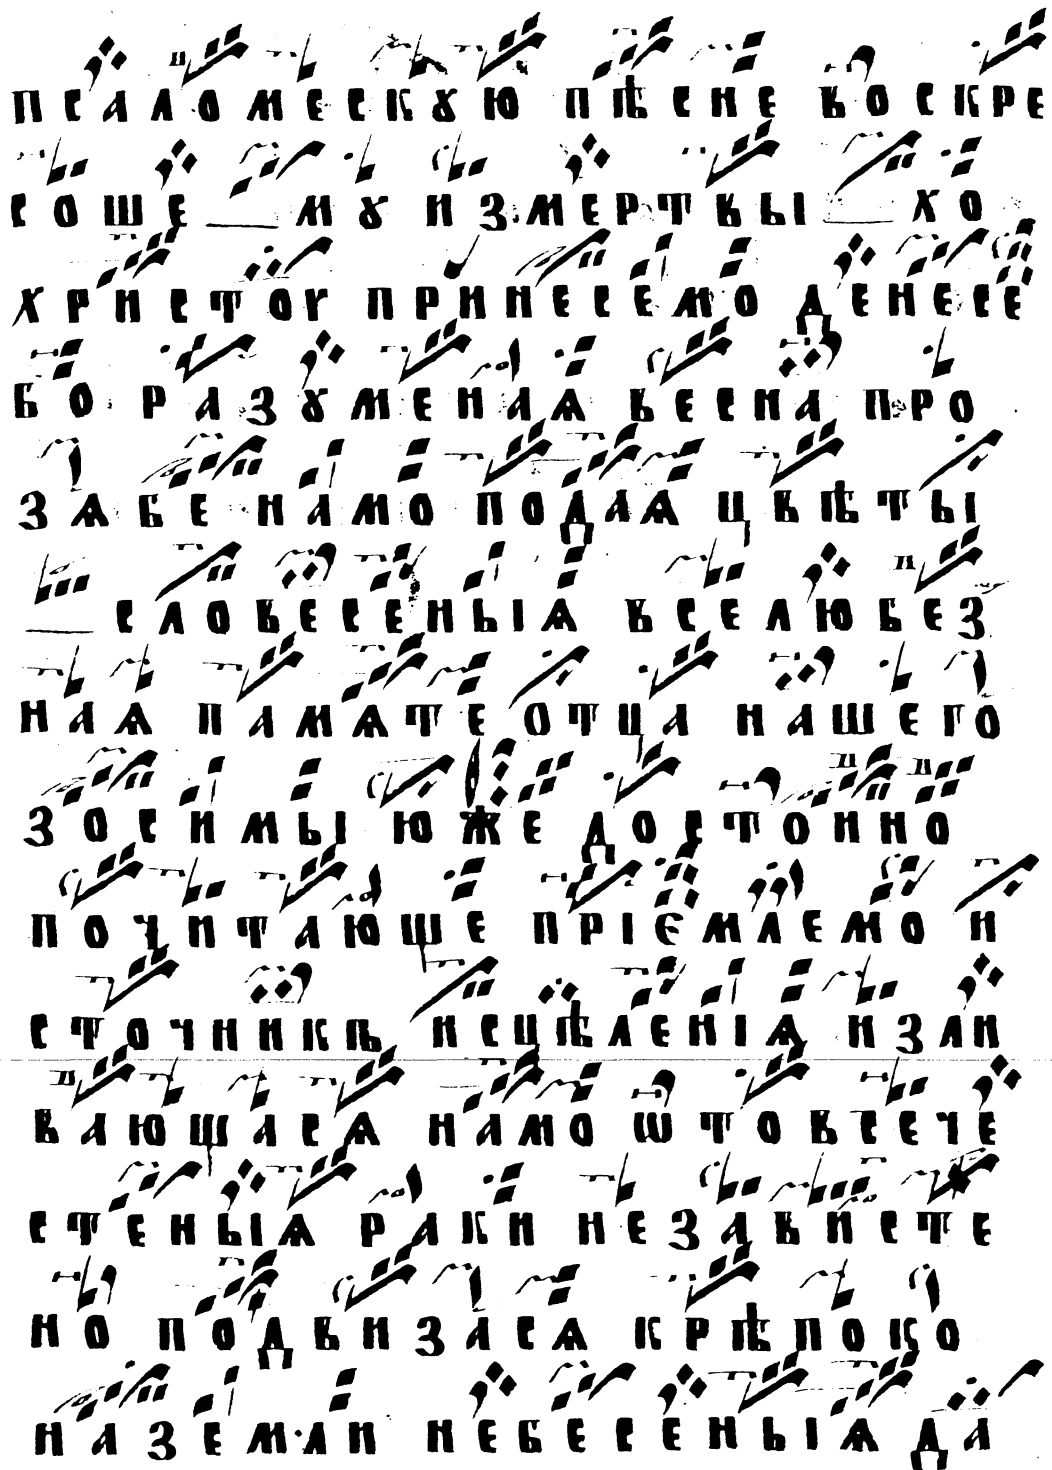 псаломескꙋю пѣсне воскре
соше мꙋ измертвы хо
христоу принесемо денесе
бо разꙋменаѧ весна про
зѧбе намо подаѧ цвѣты
словесеныѧ вселюбез
наѧ памѧте отца нашего
зосимы юже достоино
почитающе пріємлемо и
сточникъ исцѣленіѧ изли
вающасѧ намо ѿтовсече
стеныѧ раки независте
но подвизасѧ крѣпоко
наземли небесеныѧ да